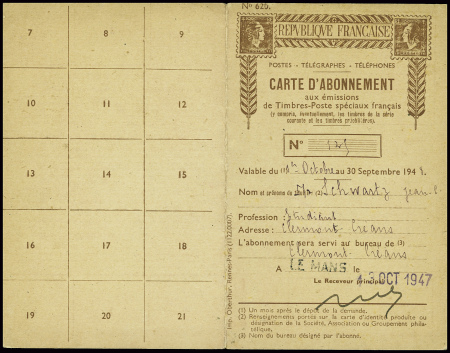 7 8 9
10 11 12
13 14 15
16 17 18
19 20 21
Imp. Oberthur, Rennes-Paris (1122-0007).
No 825.
REPVBLIQUE FRANÇAISE
POSTES - TÉLÉGRAPHES - TÉLÉPHONES
CARTE D'ABONNEMENT
aux émissions
de Timbres-Poste spéciaux français
(y compris, éventuellement, les timbres de la série
courante et les timbres préoblitérés).
N° 125
Valable du 1er Octobre au 30 Septembre 1948.
Nom et prénom Schwartz Jean
Profession Etudiant
Adresse : Clermont-Créans
L'abonnement sera servi au bureau de (3)
Clermont-Créans
A LE MANS le 4 5 OCT 1947
Le Receveur Principal
(1) Un mois après le dépôt de la demande.
(2) Renseignements portés sur la carte d'identité produite ou
désignation de la Société, Association ou Groupement phila-
télique.
(3) Nom du bureau désigné par l'abonné.